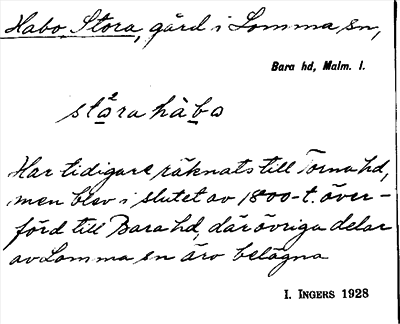 Habo, Stora, gård i Lomma sn,
Bara hd, Malm. l.
stå̱²ra hàḇo
Har tidigare räknats till Torna hd,
men blev i slutet av 1800-t. över-
förd till Bara hd, där övriga delar
av Lomma sn äro belägna
I. INGERS 1928